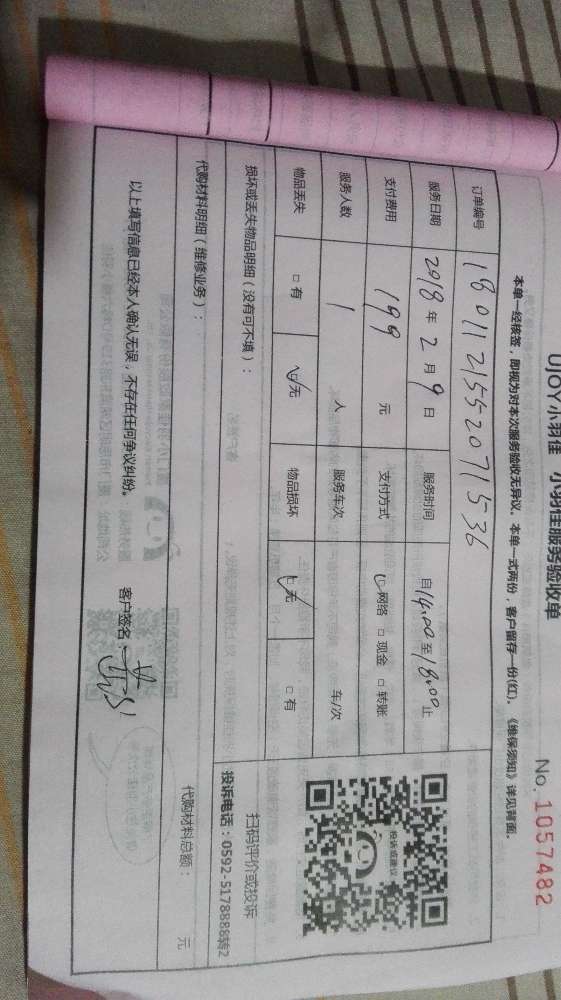 UJOY小羽佳 小羽佳服务验收单
No. 1057482
本单一经核签，即视为对本次服务验收无异议。本单一式两份，客户留存一份(红)。《维保须知》详见背面。
订单编号 18011215520071536
服务日期 2018年2月9日 服务时间 自14:00至18:00止
支付费用 199 元 支付方式 ☑网络 □现金 □转账
服务人数 1 人 服务车次 车/次
物品丢失 □有 ☑无 物品损坏 ☑无 □有
损坏或丢失物品明细（没有可不填）：
投诉或建议
扫码评价或投诉
投诉电话：0592-5178888转2
代购材料明细（维修业务）：
代购材料总额： 元
以上填写信息已经本人确认无误，不存在任何争议纠纷。
客户签名：